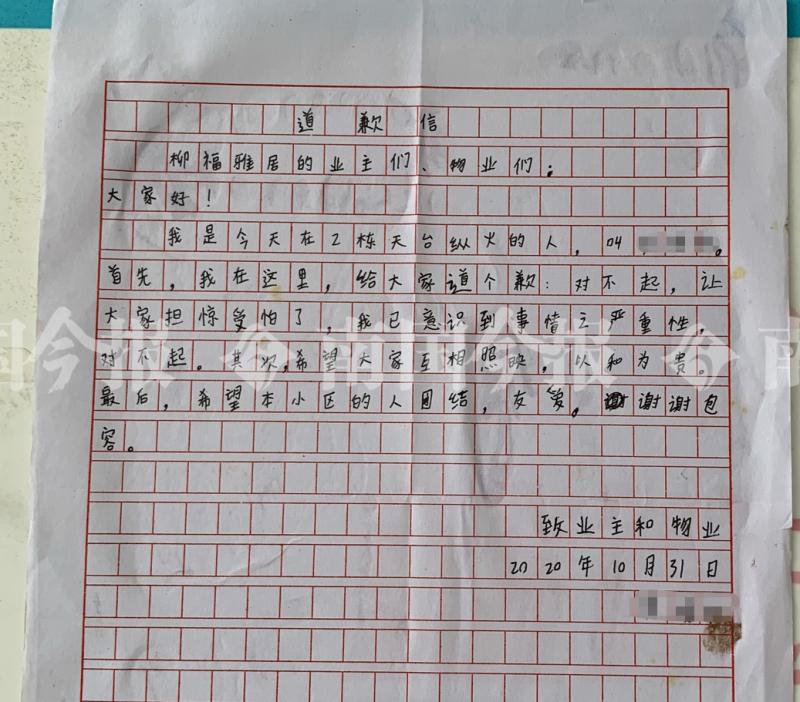 道歉信
柳福雅居的业主们、物业们：
大家好！
我是今天在2栋天台纵火的人，04
首先，我在这里，给大家道个歉：对不起，让
大家担惊受怕了，我已意识到事情之严重性，
对不起。其次，希望大家互相照映，以和为贵。
最后，希望本小区的人团结，友爱。谢谢谢包
容。
致业主和物业
2020年10月31日
南国今报